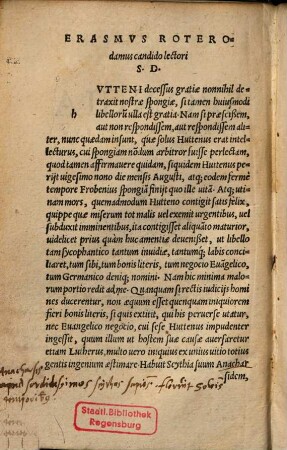 ERASMVS ROTERO-
damus candido lectori
S. D.
h VTTENI decessus gratiæ nonnihil de-
traxit nostræ spongiæ, si tamen huiusmodi
libellorũ ulla est gratia. Nam si præscissem,
aut non respondissem, aut respondissem ali-
ter, nunc quædam insunt, quæ solus Huttenus erat intel-
lecturus, cui spongiam nõdum arbitror fuisse perlectam,
quod tamen affirmauere quidam, siquidem Huttenus pe-
rijt uigesimo nono die mensis Augusti, atq; eodem ferme
tempore Frobenius spongiã finijt quo ille uitã. Atq; uti-
nam mors, quemadmodum Hutteno contigit satis felix,
quippe quæ miserum tot malis uel exemit urgentibus, uel
subduxit imminentibus, ita contigisset aliquãto maturior,
uidelicet prius quàm huc amentiæ deuenisset, ut libello
tam sycophantico tantum inuidiæ, tantumq; labis conci-
liaret, tum sibi, tum bonis literis, tum negocio Euãgelico,
tum Germanico deniq; nomini. Nam hic minima malo-
rum portio redit ad me. Quanquam si rectis iudicijs homi-
nes ducerentur, non æquum esset quenquam iniquiorem
fieri bonis literis, si quis extitit, qui his peruerse utatur,
nec Euangelico negocio, cui sese Huttenus impudenter
ingessit, quum illum ut hostem suæ causæ auersaretur
etiam Lutherus, multo uero iniquius ex unius uitio totius
gentis ingenium æstimare. Habuit Scythia suum Anachar
sidem,
Anacharsis
Staatl. Bibliothek
Regensburg